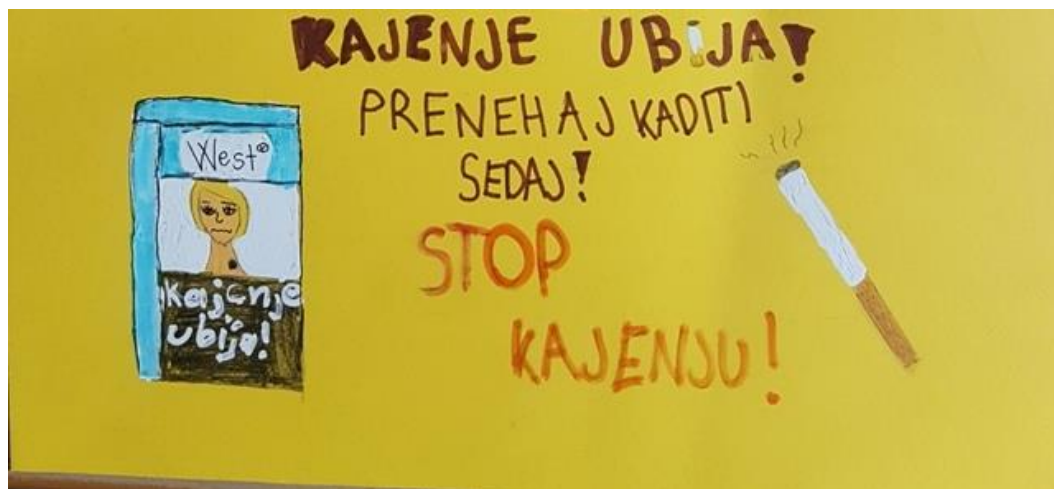 KAJENJE UBIJA!
PRENEHAJ KADITI
SEDAJ!
STOP
KAJENJU!
West®
kajenje
ubija!